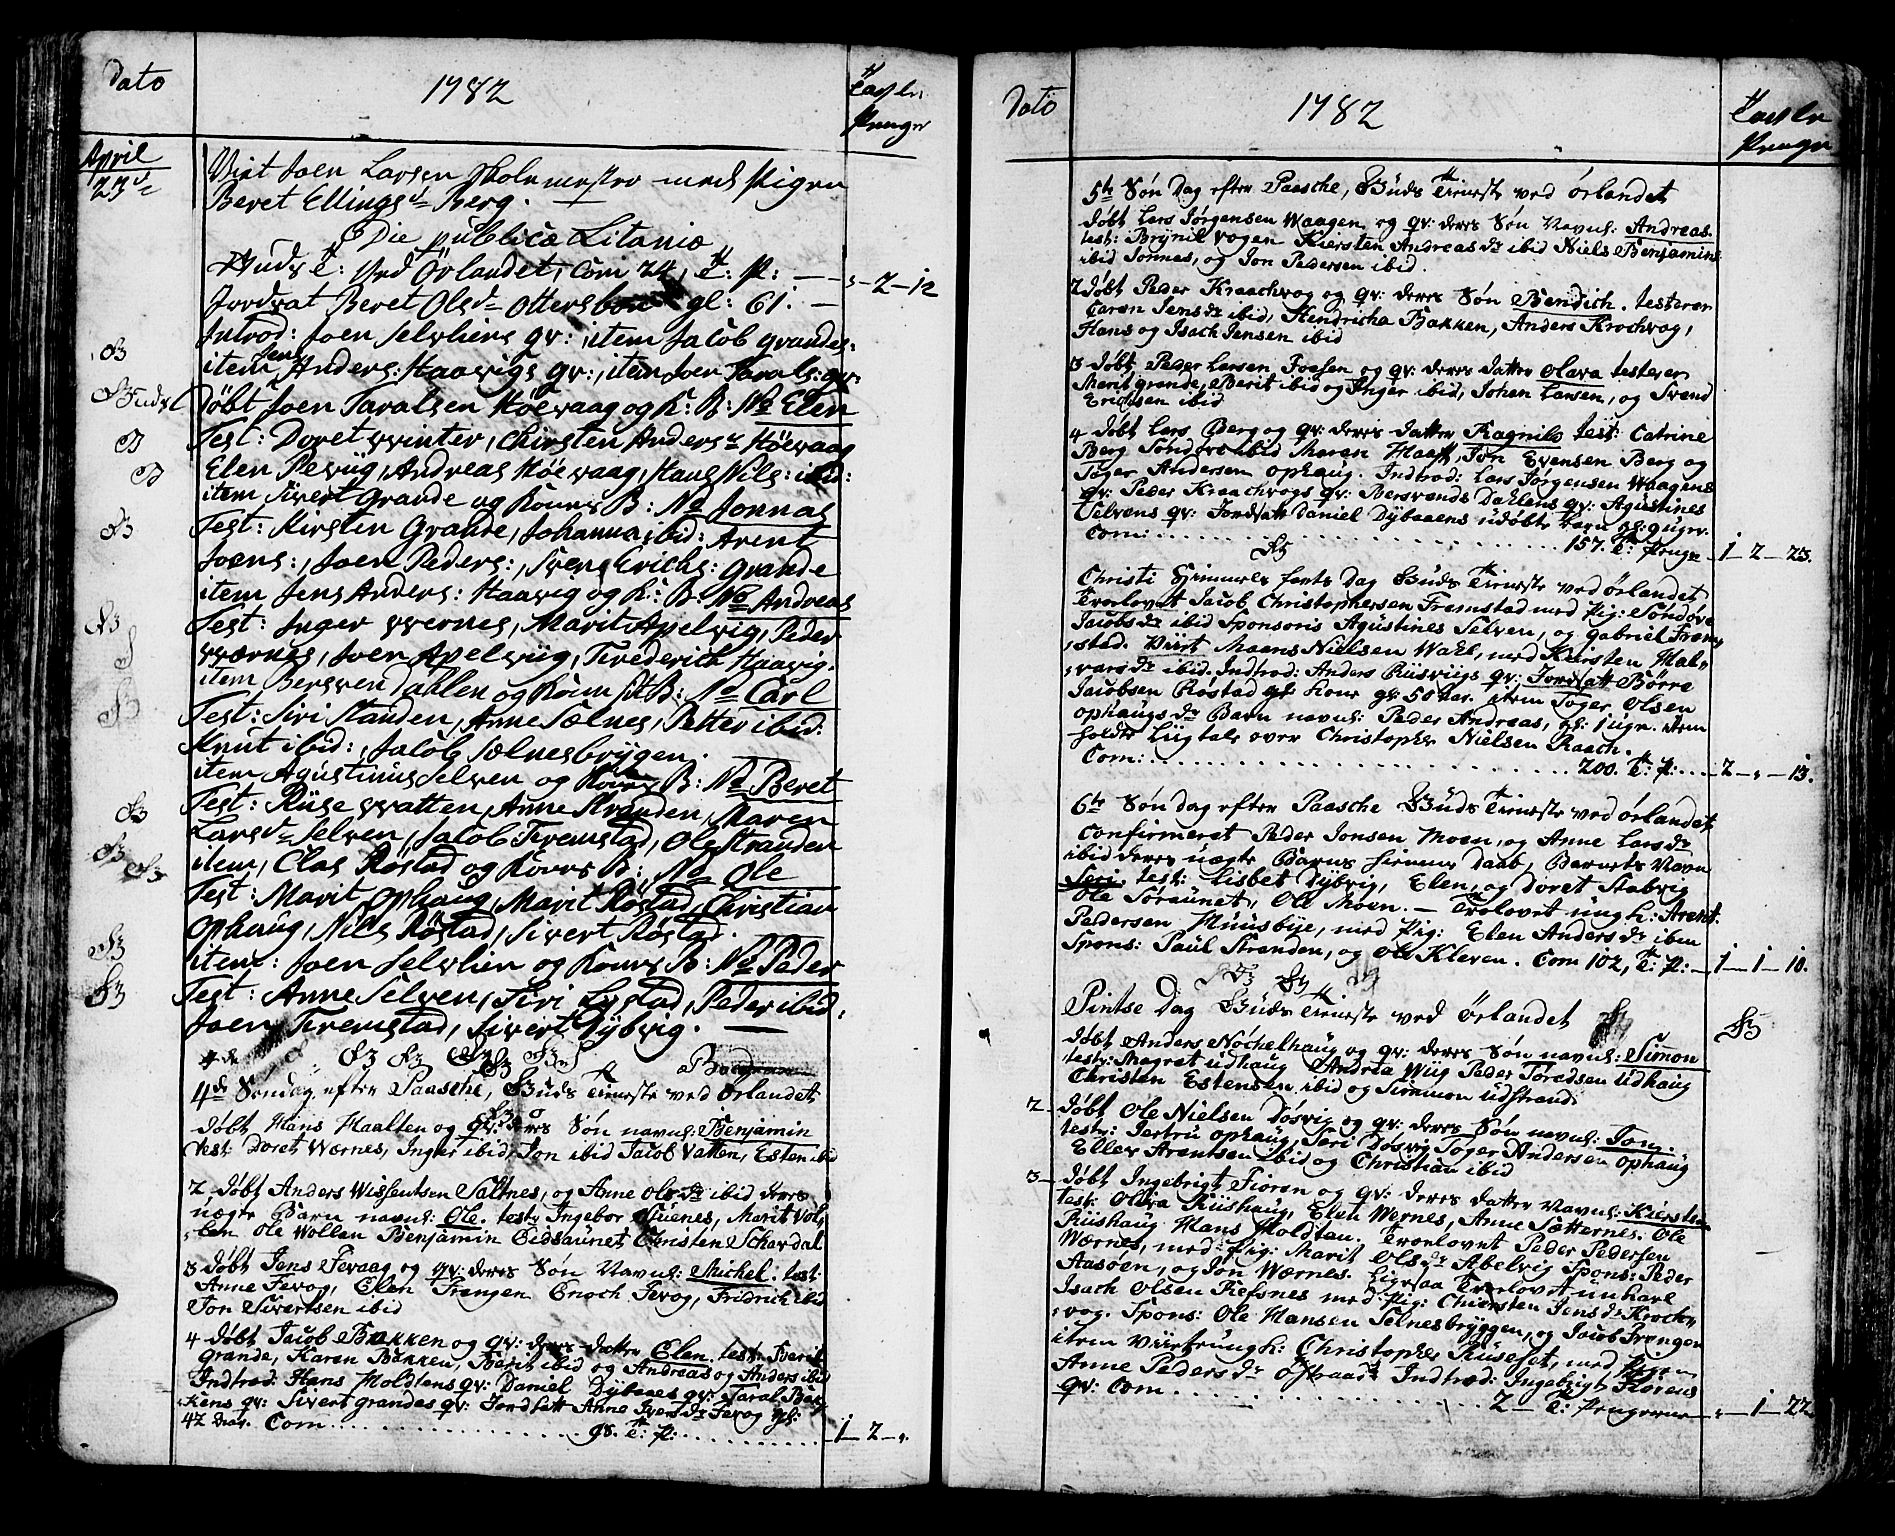 Dato
1782
Tavle
Penger
April
23de
Viet Joen Larsen Skolemester med Pigen
Beret Ellings Berg.
Die publicæ Litaniæ
Guds T: Ved Örlandet, Com 24, T: P: — „-2-12
Jordsat Beret Olsd Ottersboe gl: 61. —
Introd: Joen Selvliens qv:, item Jacob Grandes:
item Jens Anders: Haavigs qv:, item Joen Tarals: qv:
Döbt Joen Taralsen Höevaag og K: B: No Elen
Test: Doret Winter, Chirsten Andersd Höevaag
Elen Revüg, Andreas Höevaag, Hans Nils: ibid:
item Sivert Grande og Kones B: No Jonnas
Test: Kirsten Grande, Johanna ibid: Arent
Joens:, Joen Peders:, Svens Erichs: Grande
item Jens Anders: Haavig og K: B: No Andreas
Test: Inger Wernes, Marit Apelvig, Peder
Wærnes, Joen Apelvüg, Frederich Haavig.
item Bersven Dahlen og Kones B: No Carl
Test: Siri Standen, Anne Sælnes, Petter ibid:
Knut ibid:, Jacob Sælnesbrygen.
item Agustinus Selven og Kones B: No Beret
Test: Rüse Vatten, Anne Stranden, Maren
Larsd Selven, Jacob Fremstad, Ole Stranden
item, Clas Røstad og Kones B: No Ole
Test: Marit Ophaug, Marit Røstad, Christian
Ophaug, Nils Røstad, Sivert Røstad.
item: Joen Selvlien og Kones B: No Peder
Test: Anne Selven, Siri Lystad, Peder ibid,
Joen Fremstad, Sivert Dybvig. —
4de Søndag efter Paasche, Guds Tieneste ved Örlandet
Døbt Hans Haalten og qv: deres Søn navnl: Benjamin
test: Doret Wærnes, Inger ibid, Jon ibid Jacob Vatten, Esten ibid
2 Døbt Anders Wissentsen Saltnes, og Anne Olsdr ibid deres
uægte Barn navnl: Ole. test: Ingebor Nuenes, Marit Vol-
len Ole Wollan Benjamin Eidsaunet Christen Schardal
3 Døbt Jens Fevaag og qv: deres Søn Navnl: Michel. test
Anne Fevog, Elen Frengen Enoch Fevog, Fridrich ibid
Jon Sivertsen ibid
4 Døbt Jacob Bakken og qv: deres datter Elen. test: Berit
Grande, Karen Bakken, Berit ibid og Andreas og Anders ibid
Indtrod: Hans Moldtens qv: Daniel Dybaaes qv: Taral Bak-
kens qv: Sivert grandes qv: Jordsatt Anne Iversdr Fevog gl:
42 aar. Com . . . 98. T: P: . . . -1-2-„
Dato
1782
Tavle
Penge
5te Søn Dag efter Paasche, Guds Tieneste ved Ørlandet
Døbt Lars Jørgensen Waagen og qv: deres Søn Navnl: Andreas.
test: Brynil vogen Kiersten Andreasdr ibid Niels Benjamins
ibid Jonnes, og Jon Pedersen ibid.
2 Døbt Peder Kraachvog og qv: deres Søn Bendich. testerer
Caren Jensdr ibid, Hendricha Bakken, Anders Krochvog,
Hans og Isach Jensen ibid
3 Døbt Peder Larsen Fossen og qv: deres datter Olava testerer
Marit grande, Berit ibid og Inger ibid, Johan Larsen, og Svend
Erichsen ibid
4 Døbt Lars Berg og qv: deres datter Ragnild test: Catrine
Berg Sønderve ibid Maren Haaft, Jon Evensen Berg og
Toger Andersen ophaug. Indtrod: Lars Jørgensen Waagens
qv: Peder Kraachvogs qv: Bersvends Dahlens qv: Agustines
Selvens qv: Jordsatt Daniel Dybaaens udøbte barn gl: 9 ugr.
Com: . . . 157. T: Penge -1-2-23.
Christi Himmelfarts Dag Guds Tieneste ved ørlandet
Trolovet Jacob Christophersen Fremstad med Pig: Søndøve
Jacobsdr ibid Sponsoris Agustines Selven, og Gabriel Frem-
stad. Viirt Moens Nielsen Wahl, med Kiersten Hal-
varsdr ibid. Indtrod: Anders Riisviigs qv: Jordsatt Børre
Jacobsen Røstad gl 50 aar. item Toger Olsen
ophaugs dr Barn navnl: Peder Andreas, gl: 1 ugr. item
holdte Liigtale over Christopher Nielsen Raach.
Com: . . . 200. T: P: . . . -2-„-13.
6te Søn dag efter Paasche Guds Tieneste ved ørlandet
Confirmeret Peder Jonsen Moen, og Anne Larsdr
ibid deres uægte Barns hiemme Daab, Barnets Navn
Seri. test: Lisbet Dybvig, Elen, og Doret Stabvig
Ole Søraunet, Ole Moen. — Trolovet ung k: Arent
Pedersen Huusbye, med Pig: Elen Andersdr ibm
Spons: Paul Strenden, og Ole Kleven. Com 102, T: P: -1-1-10.
Pintse Dag Guds Tieneste ved Ørlandet
Døbt Anders Nøchelhaug og qv: deres Søn navnl: Simon
test: Magret udhaug Andrea Wüg Peder Toredsen Udhaug
Christen Estensen ibid og Simmon udstrand.
2 Døbt Ole Nielsen Døsvig og qv: deres Søn navnl: Jon.
test: Jertru ophaug, Seri Døsvig Toger Andersen ophaug
Eller Arentsen ibid og Christian ibid
3 Døbt Ingebrigt Fioren og qv: deres datter Navnl: Kiersten
test: Olava Riishaug, Elen Wernes, Anne Sætternes. Ole
Riishaug Hans Moldten. Trolovet Peder Pedersen
Wærnes, med Pig: Marit Olsdr Abelvig Spons: Peder
Aasøen, og Jon Wærnes. Ligesaa Trolovet unkarl
Isach Olsen Refsnes med Pig: Chiersten Jensdr Kroch-
vog. Spons: Ole Hansen Selnesbryggen, og Jacob Frengen
item Viirt ung k: Christopher Ruseset, med Pigen
Anne Pedersdr østraadt Indtrod: Ingebrigt Fiorens
qv: Com . . . 2 — T: Pengerne — „-1-22